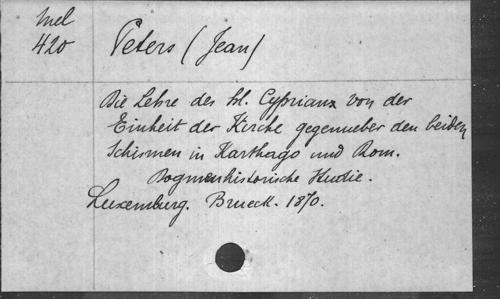 Mel
420
Peters (Jean)
Die Lehre des hl. Cyprians von der
Einheit der Kirche gegenueber den beiden
Schismen in Karthago und Rom.
Dogmenhistorische Studie.
Luxemburg. Brueck. 1870.